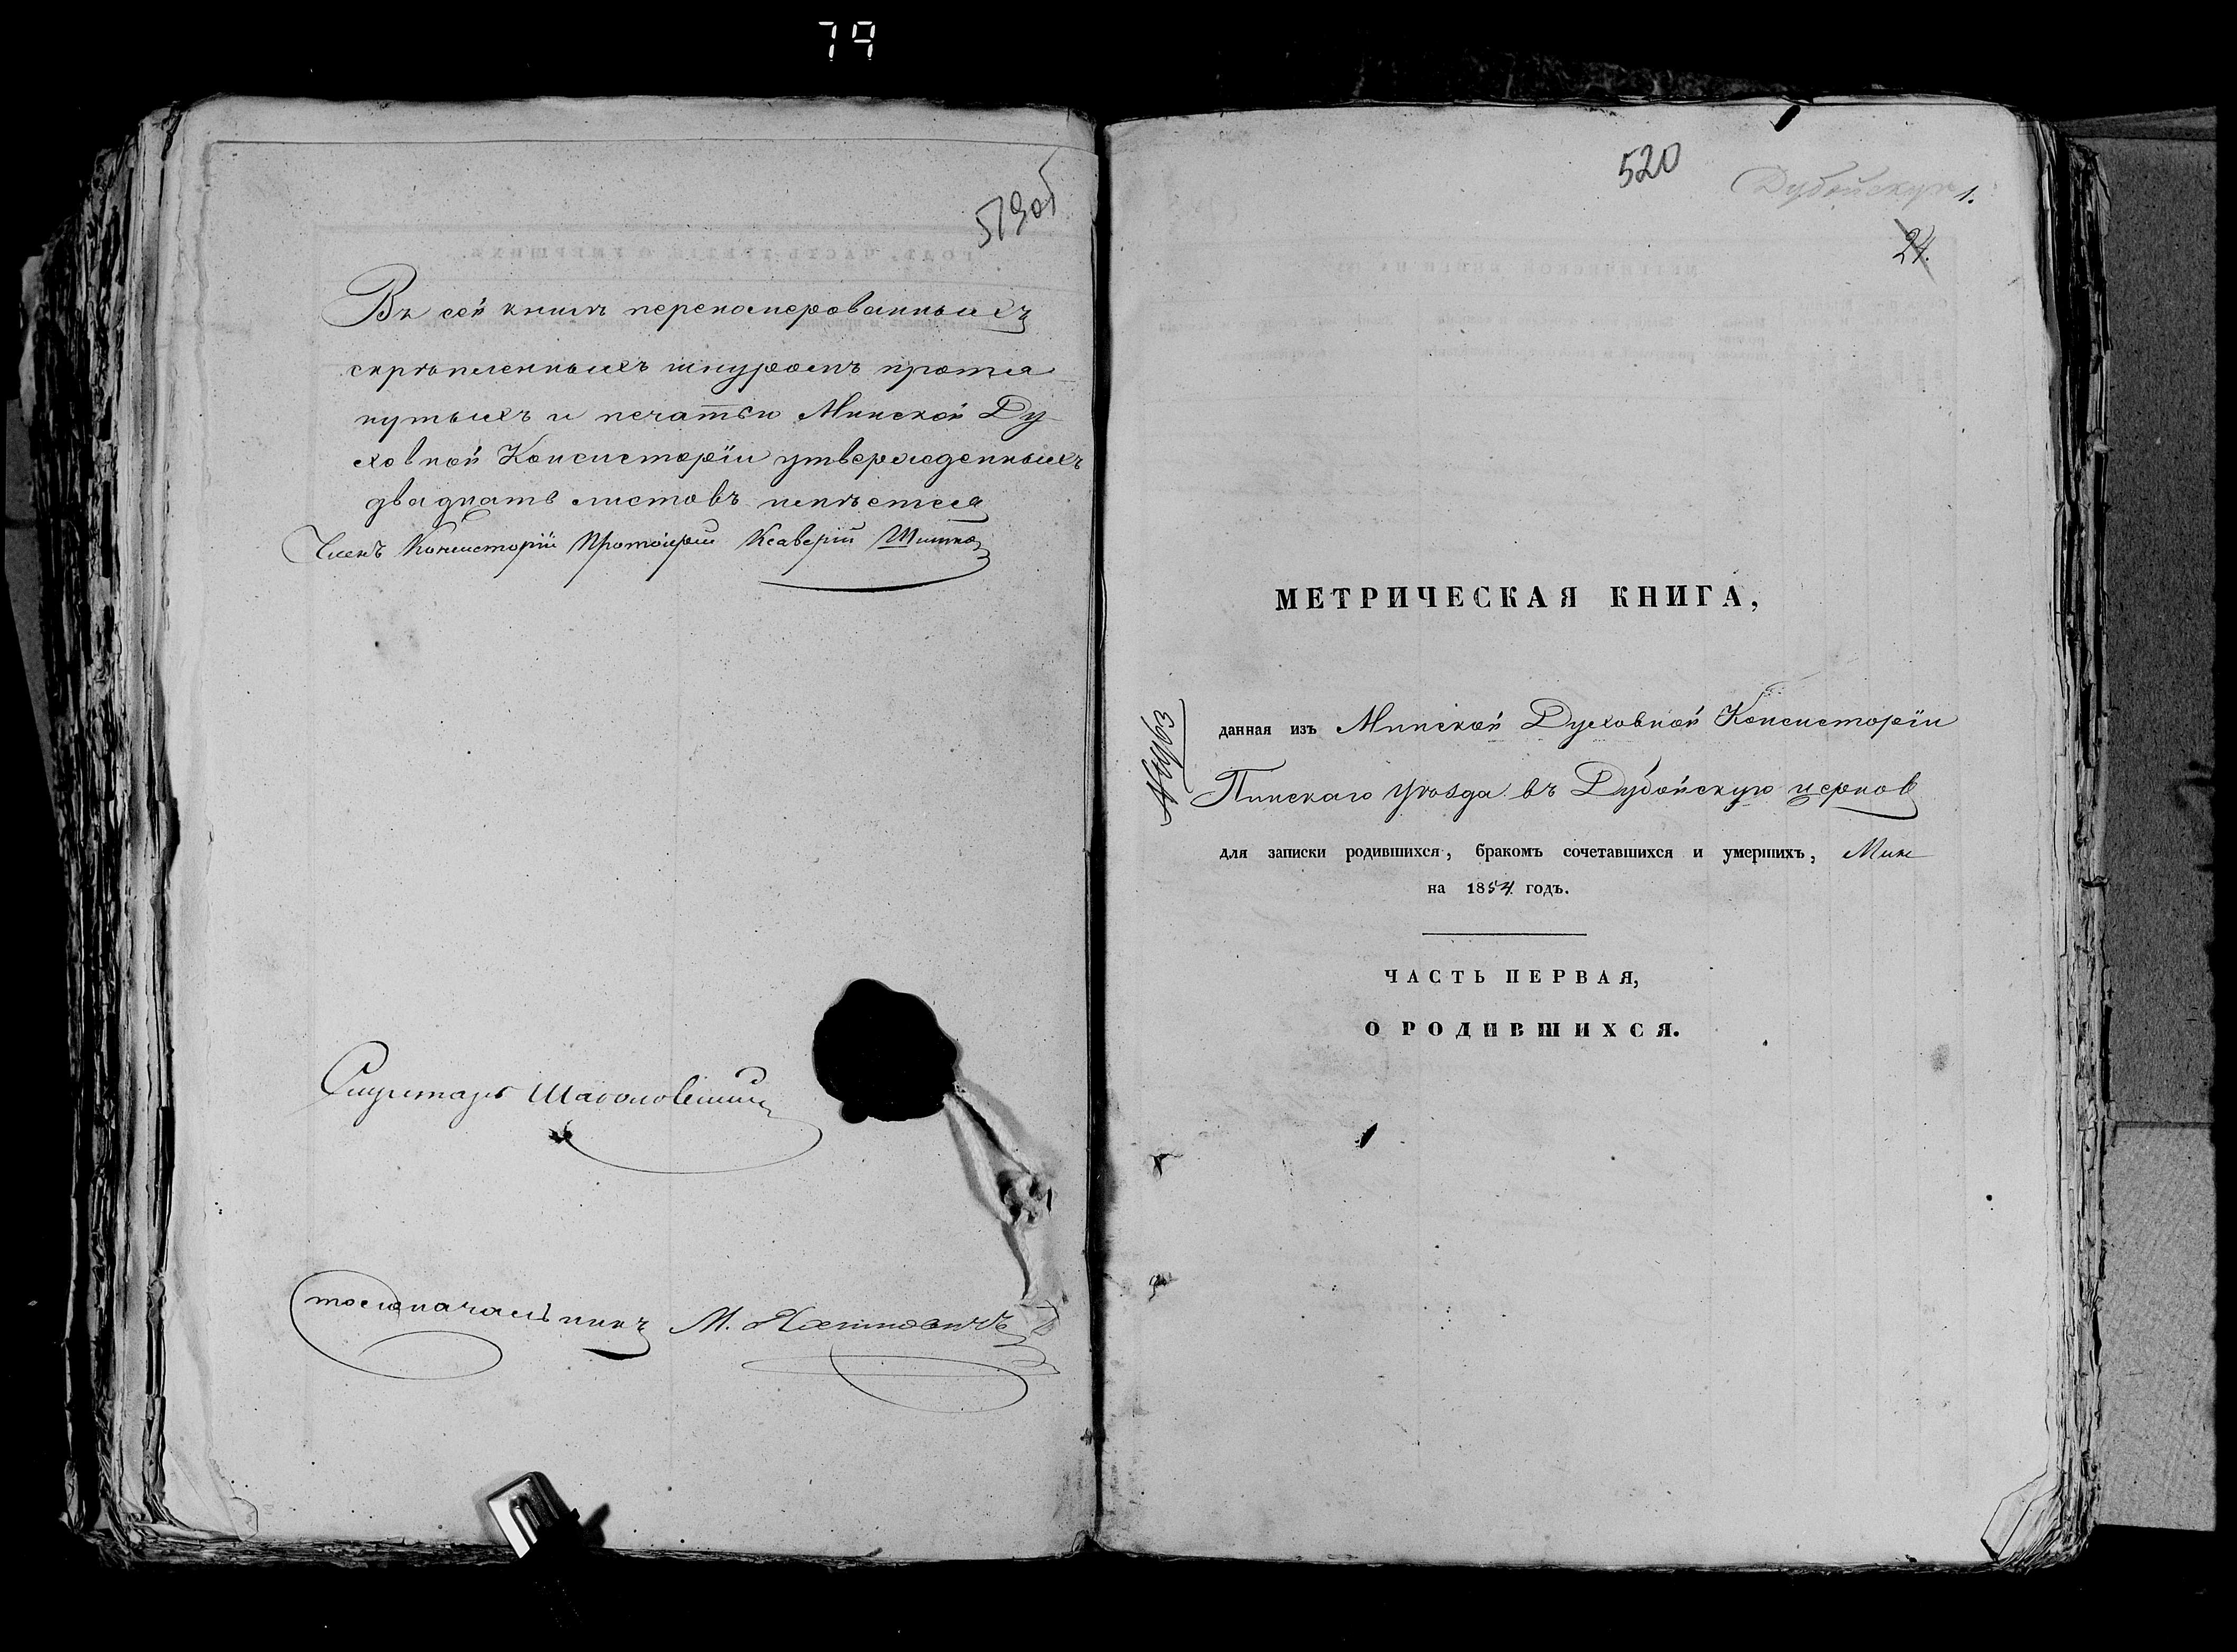 79
519об
Въ сей книгѣ перенумерованныхъ
скрѣпленныхъ шнуромъ протя
нутыхъ и печатью Минской Ду
ховной Консисторіи утвержденныхъ
двадцать листовъ имѣется
Членъ Консисторіи Протоіерей Ксаверій
Секретарь
толоначальникъ М.
520
Дубойскую
1.
24.
МЕТРИЧЕСКАЯ КНИГА,
данная изъ Минской Духовной Консисторіи
Пинскаго уѣзда въ Дубойскую церковь
для записки родившихся, бракомъ сочетавшихся и умершихъ,
на 1854 годъ.
ЧАСТЬ ПЕРВАЯ,
О РОДИВШИХСЯ.